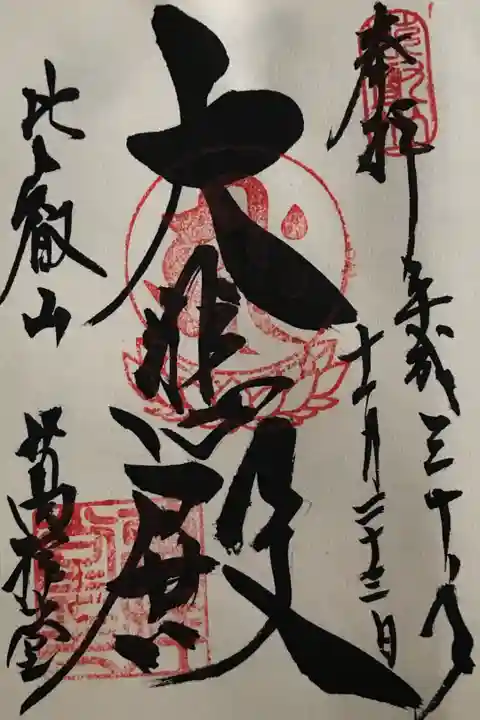 奉拝
平成三十年
十一月二十三日
大悲殿
比叡山
萬拝堂